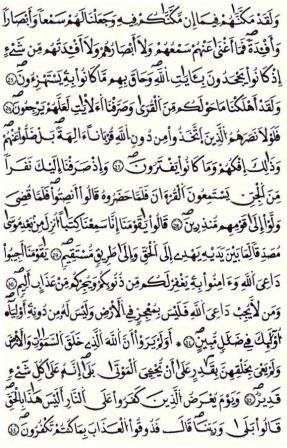 وَلَقَدْ مَكَّنَّٰهُمْ فِيمَا إِن مَّكَّنَّٰكُمْ فِيهِ وَجَعَلْنَا لَهُمْ سَمْعًا وَأَبْصَٰرًا
وَأَفْـِٕدَةً فَمَا أَغْنَىٰ عَنْهُمْ سَمْعُهُمْ وَلَا أَبْصَٰرُهُمْ وَلَا أَفْـِٕدَتُهُم مِّن شَيْءٍ
إِذْ كَانُوا يَجْحَدُونَ بِـَٔايَٰتِ اللَّهِ وَحَاقَ بِهِم مَّا كَانُوا بِهِ يَسْتَهْزِءُونَ ٢٥
وَلَقَدْ أَهْلَكْنَا مَا حَوْلَكُم مِّنَ الْقُرَىٰ وَصَرَّفْنَا الَايَٰتِ لَعَلَّهُمْ يَرْجِعُونَ ٢٦
فَلَوْلَا نَصَرَهُمُ الَّذِينَ اتَّخَذُوا مِن دُونِ اللَّهِ قُرْبَانًا ـالِهَةً بَلْ ضَلُّوا عَنْهُمْ
وَذَٰلِكَ إِفْكُهُمْ وَمَا كَانُوا يَفْتَرُونَ ٢٧ وَإِذْ صَرَفْنَا إِلَيْكَ نَفَرًا
مِّنَ الْجِنِّ يَسْتَمِعُونَ الْقُرْءَانَ فَلَمَّا حَضَرُوهُ قَالُوا أَنصِتُوا فَلَمَّا قُضِيَ
وَلَّوِا إِلَىٰ قَوْمِهِم مُّنذِرِينَ ٢٨ قَالُوا يَٰقَوْمَنَا إِنَّا سَمِعْنَا كِتَٰبًا أُنزِلَ مِن بَعْدِ مُوسَىٰ
مُصَدِّقًا لِّمَا بَيْنَ يَدَيْهِ يَهْدِي إِلَى الْحَقِّ وَإِلَىٰ طَرِيقٍ مُّسْتَقِيمٍ ٢٩ يَٰقَوْمَنَا أَجِيبُوا
دَاعِيَ اللَّهِ وَءَامِنُوا بِهِ يَغْفِرْ لَكُم مِّن ذُنُوبِكُمْ وَيُجِرْكُم مِّنْ عَذَابٍ أَلِيمٍ ٣٠
وَمَن لَّا يُجِبْ دَاعِيَ اللَّهِ فَلَيْسَ بِمُعْجِزٍ فِي الَارْضِ وَلَيْسَ لَهُ مِن دُونِهِ أَوْلِيَاءُ
اُوْلَٰئِكَ فِي ضَلَٰلٍ مُّبِينٍ ٣١ أَوَلَمْ يَرَوْا أَنَّ اللَّهَ الَّذِي خَلَقَ السَّمَٰوَٰتِ وَالَارْضَ
وَلَمْ يَعْيَ بِخَلْقِهِنَّ بِقَٰدِرٍ عَلَىٰ أَن يُحْيِيَ الْمَوْتَىٰ بَلَىٰ إِنَّهُ عَلَىٰ كُلِّ شَيْءٍ
قَدِيرٌ ٣٢ وَيَوْمَ يُعْرَضُ الَّذِينَ كَفَرُوا عَلَى النَّارِ أَلَيْسَ هَٰذَا بِالْحَقِّ
قَالُوا بَلَىٰ وَرَبِّنَا قَالَ فَذُوقُوا الْعَذَابَ بِمَا كُنتُمْ تَكْفُرُونَ ٣٣